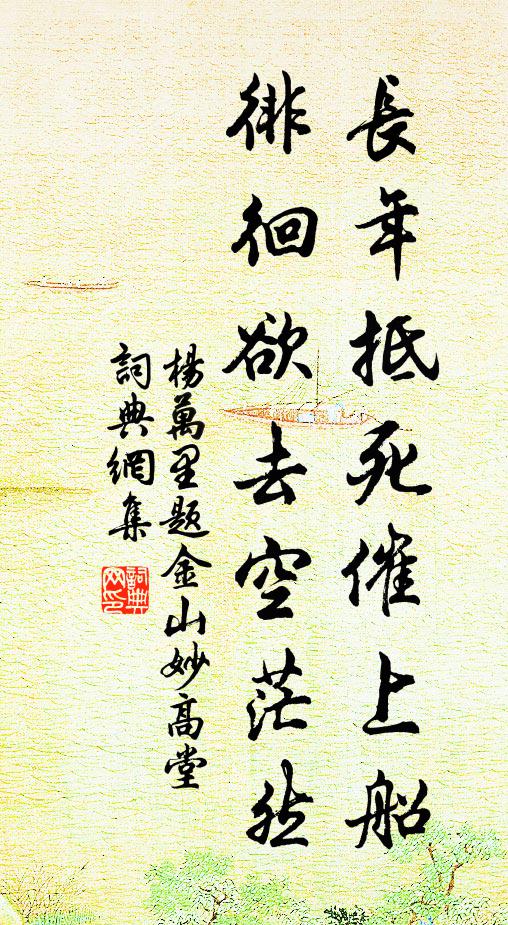 長年抵死催上船
徘徊欲去空茫然
楊萬里題金山妙高堂
詞典網集
詞典網印